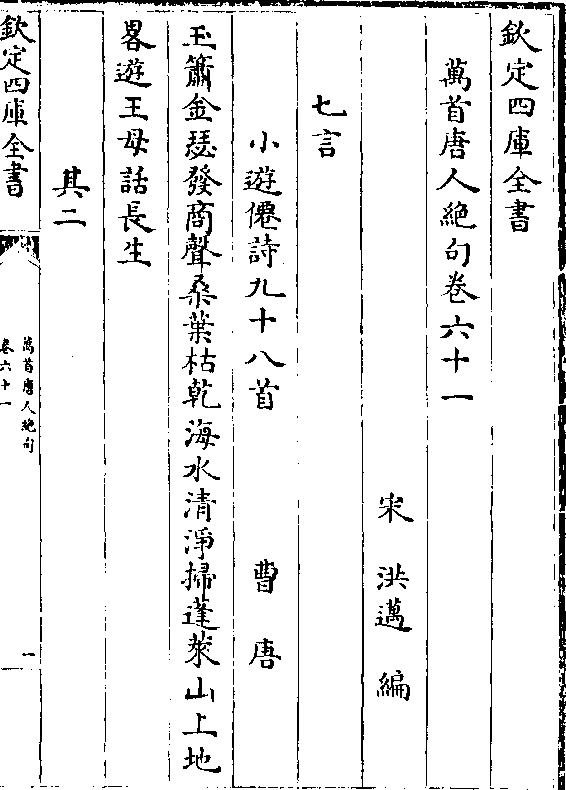 欽定四庫全書
萬首唐人絶句卷六十一
宋 洪邁 編
七言
小遊僊詩九十八首 曹唐
玉簫金瑟發商聲桑葉枯乾海水清淨掃蓬萊山上地
畧遊王母話長生
其二
欽定四庫全書
萬首唐人絶句
卷六十一
一